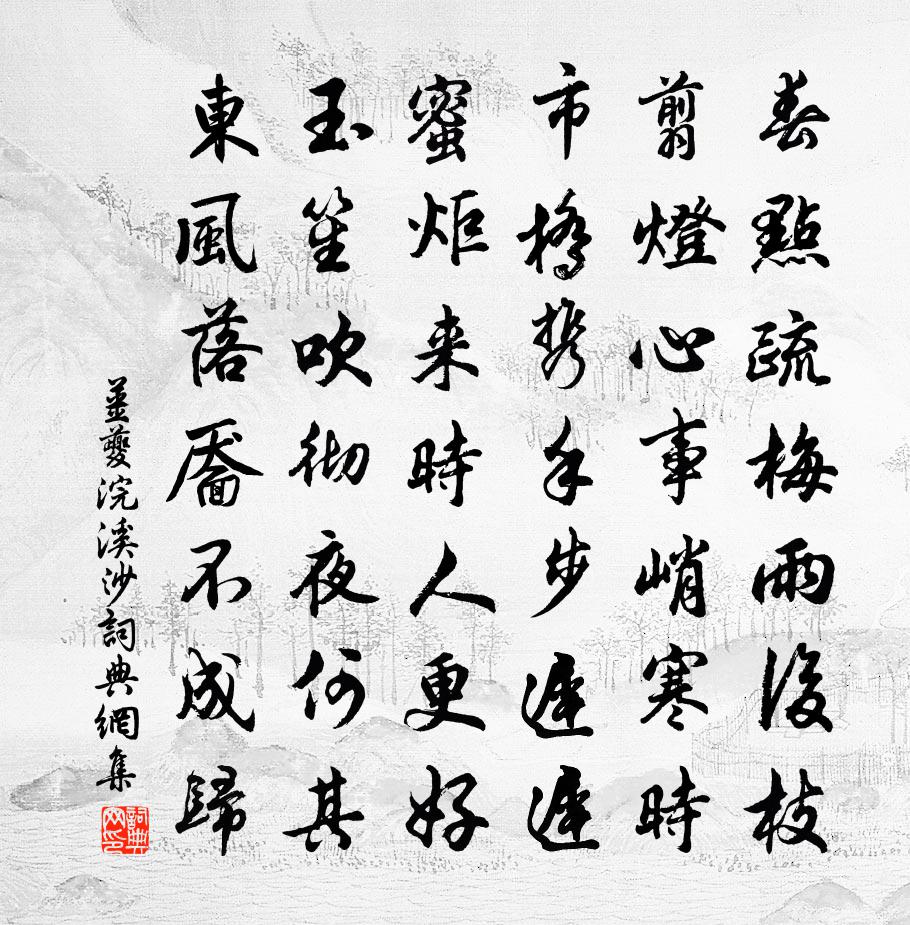 春點疏梅雨後枝
翦燈心事峭寒時
市橋携手步遲遲
蜜炬来時人更好
玉笙吹彻夜何其
東風落靥不成歸
姜夔浣溪沙詞典網集
詞典网印